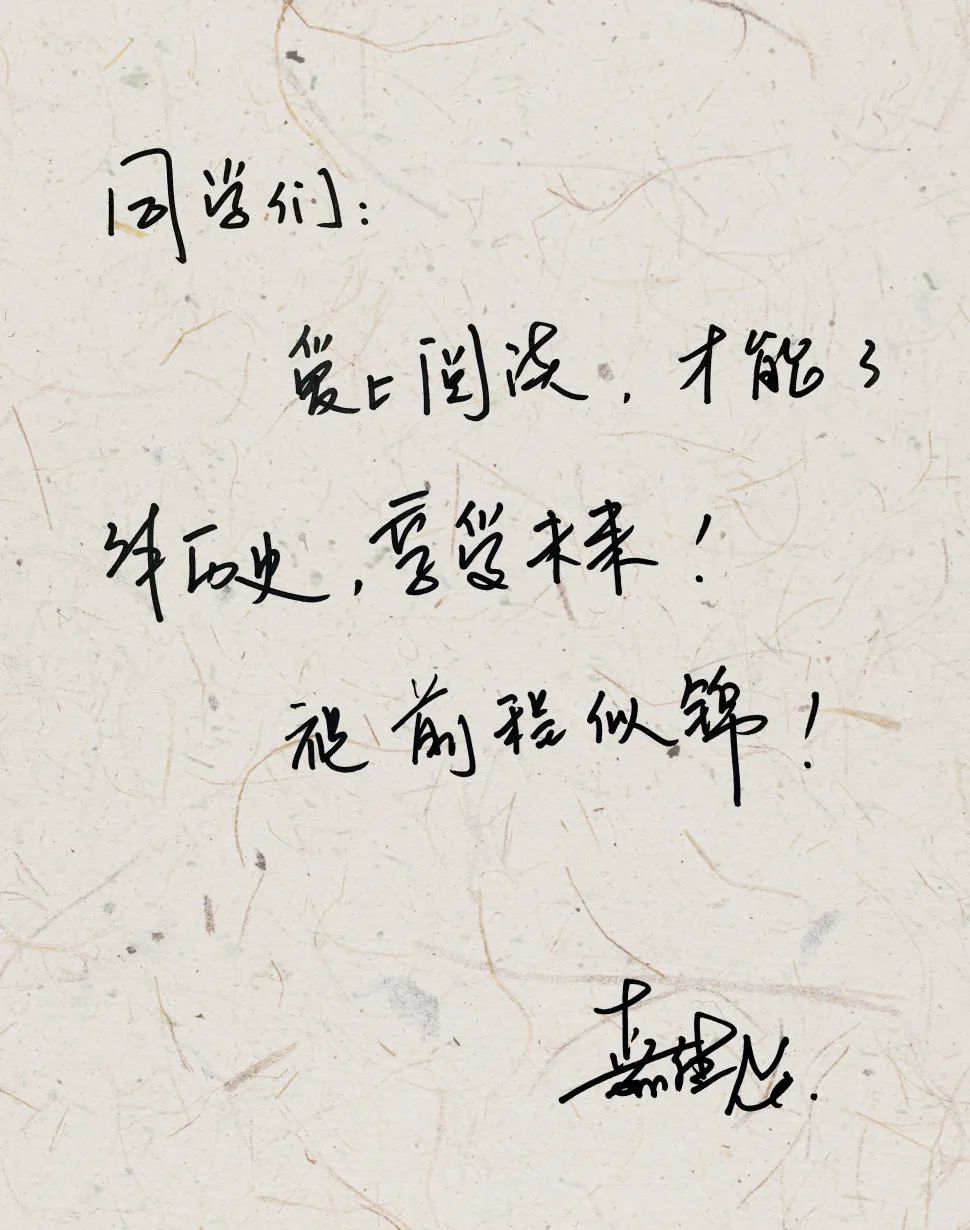 同学们：
爱上阅读，才能了
解历史，享受未来！
祝前程似锦！